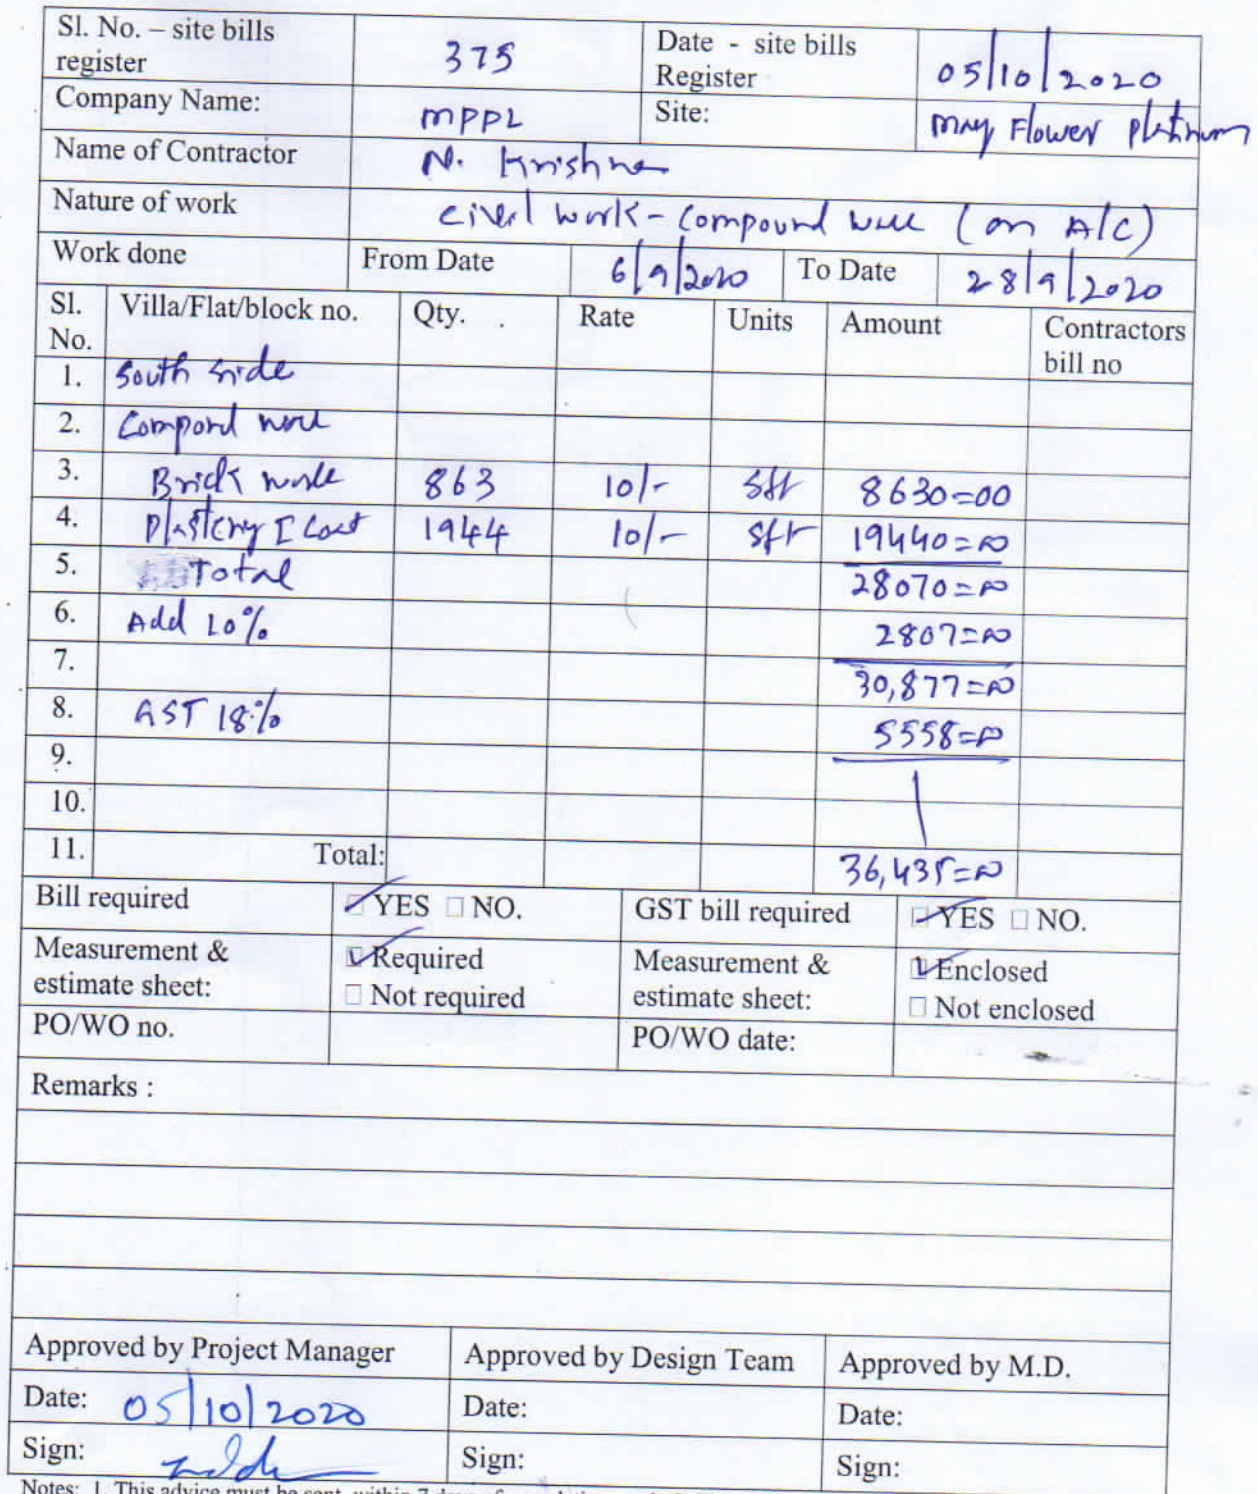 Sl. No. – site bills register 375 Date - site bills Register 05/10/2020
Company Name: MPPL Site: May Flower Platinum
Name of Contractor N. Krishna
Nature of work Civil work - Compound wall (on A/C)
Work done From Date 6/9/2020 To Date 28/9/2020
Sl. No. Villa/Flat/block no. Qty. Rate Units Amount Contractors bill no
1. South side
2. Compond wall
3. Brick work 863 10/- sft 8630=00
4. Plastering I Coat 1944 10/- sft 19440=00
5. Total 28070=00
6. Add 10% 2807=00
7. 30,877=00
8. GST 18% 5558=00
9.
10.
11. Total: 36,435=00
Bill required YES NO. GST bill required YES NO.
Measurement & estimate sheet: Required Not required Measurement & estimate sheet: Enclosed Not enclosed
PO/WO no. PO/WO date:
Remarks :
Approved by Project Manager Approved by Design Team Approved by M.D.
Date: 05/10/2020 Date: Date:
Sign: Sign: Sign:
Notes: 1. This advice must be sent within 7 days